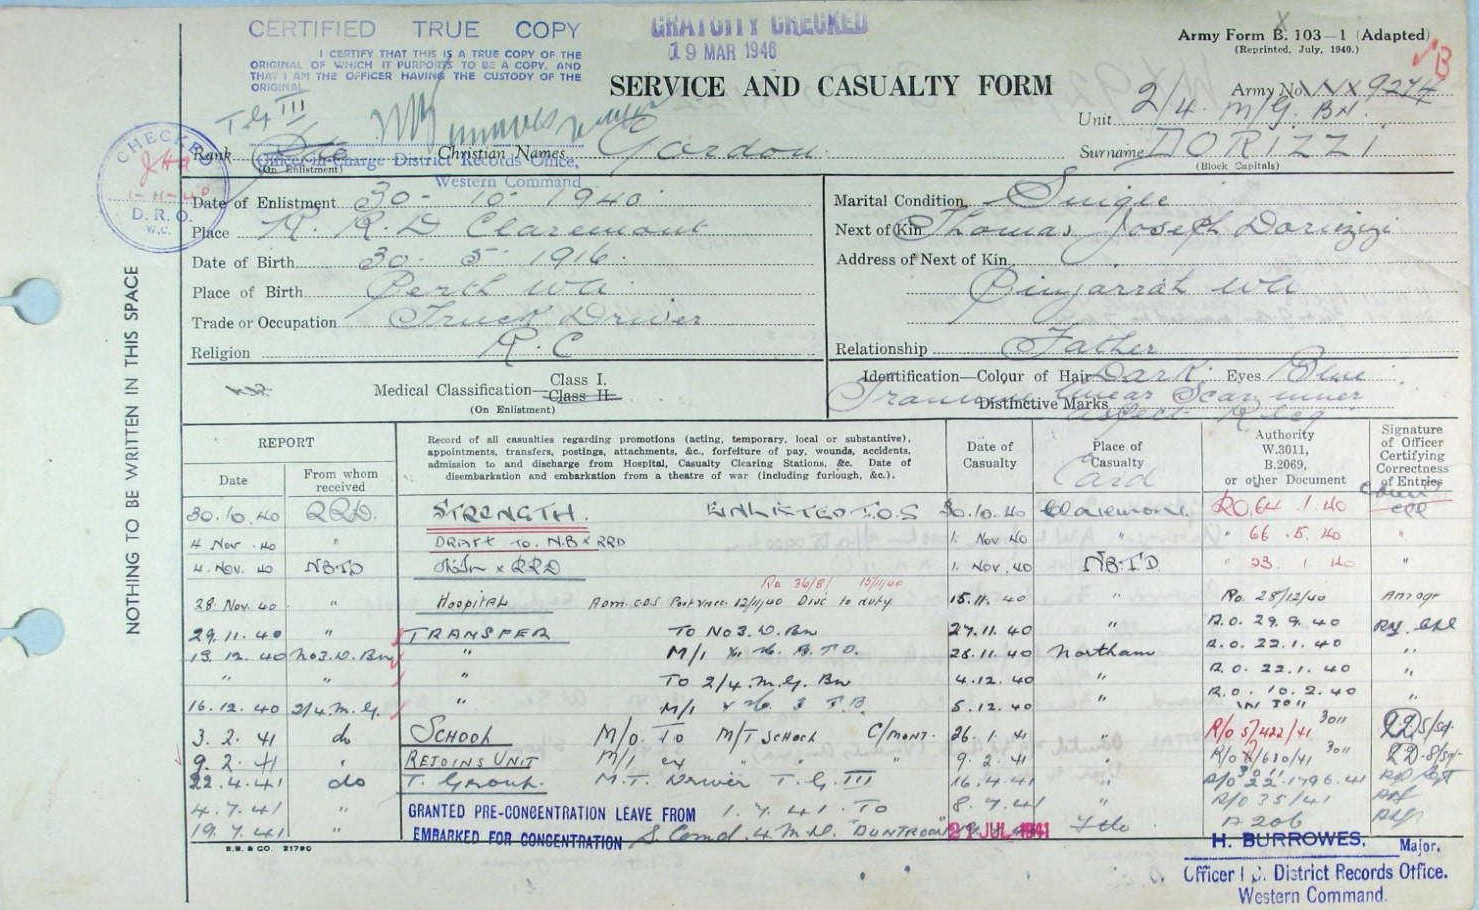 CERTIFIED TRUE COPY
I CERTIFY THAT THIS IS A TRUE COPY OF THE
ORIGINAL OF WHICH IT PURPORTS TO BE A COPY, AND
THAT I AM THE OFFICER HAVING THE CUSTODY OF THE
ORIGINAL
GRATUITY CHECKED
19 MAR 1946
Army Form B. 103-1 (Adapted)
(Reprinted, July, 1940.)
SERVICE AND CASUALTY FORM
Army No WX 9274
Unit 2/4 M/G. BN.
T G III
Rank Pte Christian Names Gordon Surname DORIZZI
(On Enlistment) (Block Capitals)
Officer in Charge District Records Office,
Western Command
CHECKED
D.R.O.
W.C.
NOTHING TO BE WRITTEN IN THIS SPACE
Date of Enlistment 30-10-1940
Place R. R. D Claremont
Date of Birth 30. 5. 1916.
Place of Birth Perth WA
Trade or Occupation Truck Driver
Religion R. C
Marital Condition Single
Next of Kin Thomas Joseph Dorizzi
Address of Next of Kin
Pinjarrah WA
Relationship Father
Medical Classification— Class I.
Class II.
(On Enlistment)
Identification—Colour of Hair Dark. Eyes Blue
Distinctive Marks Linear Scar inner
aspect R leg
REPORT
Date
From whom received
Record of all casualties regarding promotions (acting, temporary, local or substantive),
appointments, transfers, postings, attachments, &c., forfeiture of pay, wounds, accidents,
admission to and discharge from Hospital, Casualty Clearing Stations, &c. Date of
disembarkation and embarkation from a theatre of war (including furlough, &c.).
Date of Casualty
Place of Casualty
Card
Authority W.3011, B.2069, or other Document
Signature of Officer Certifying Correctness of Entries
30.10.40 RRD. STRENGTH. ENLISTED T.O.S 30.10.40 Claremont RO 64 .1.40
4 Nov. 40 " DRAFT to N.B x RRD 1. Nov 40 " " 66 .5. 40 "
4. Nov. 40 NBTD x RRD 1. Nov. 40 NB.T.D " 23. 1. 40 "
Ro 36/8/ 15/11/40
28. Nov. 40 " Hospital Adm. CDS 12/11/40 Disc to duty 15.11.40 " Ro. 28/12/40
29.11.40 " TRANSFER To No 3. D. Bn 27.11.40 " R.O. 29.9.40
13.12.40 No 3. D. Bn " M/I 28.11.40 Northam R.O. 22.1.40 "
" " " To 2/4. M.G. Bn 4.12.40 " R.O. 22.1.40 "
16.12.40 2/4 M.G. " M/I 5.12.40 " R.O. 10.2.40 "
3. 2. 41 do SCHOOL M/O To M/T SCHOOL C/MONT. 26.1.41 " R/O 5/422/41 3011
9. 2. 41 " REJOINS UNIT M/I ex " " " 9. 2. 41 " /630/41 3011
22.4.41 do T. GROUP. M.T. Driver T. G. III 16.4.41 " 1796.41
4.7.41 " GRANTED PRE-CONCENTRATION LEAVE FROM 1.7.41 To 8.7.41 " R/O 35/41
19.7.41 " EMBARKED FOR CONCENTRATION S. Comd. 4 M.D. "DUNTROON" 21 JUL 1941 Ftle A 206
S.B. & CO. 21780
H. BURROWES. Major.
Officer I/C. District Records Office.
Western Command.